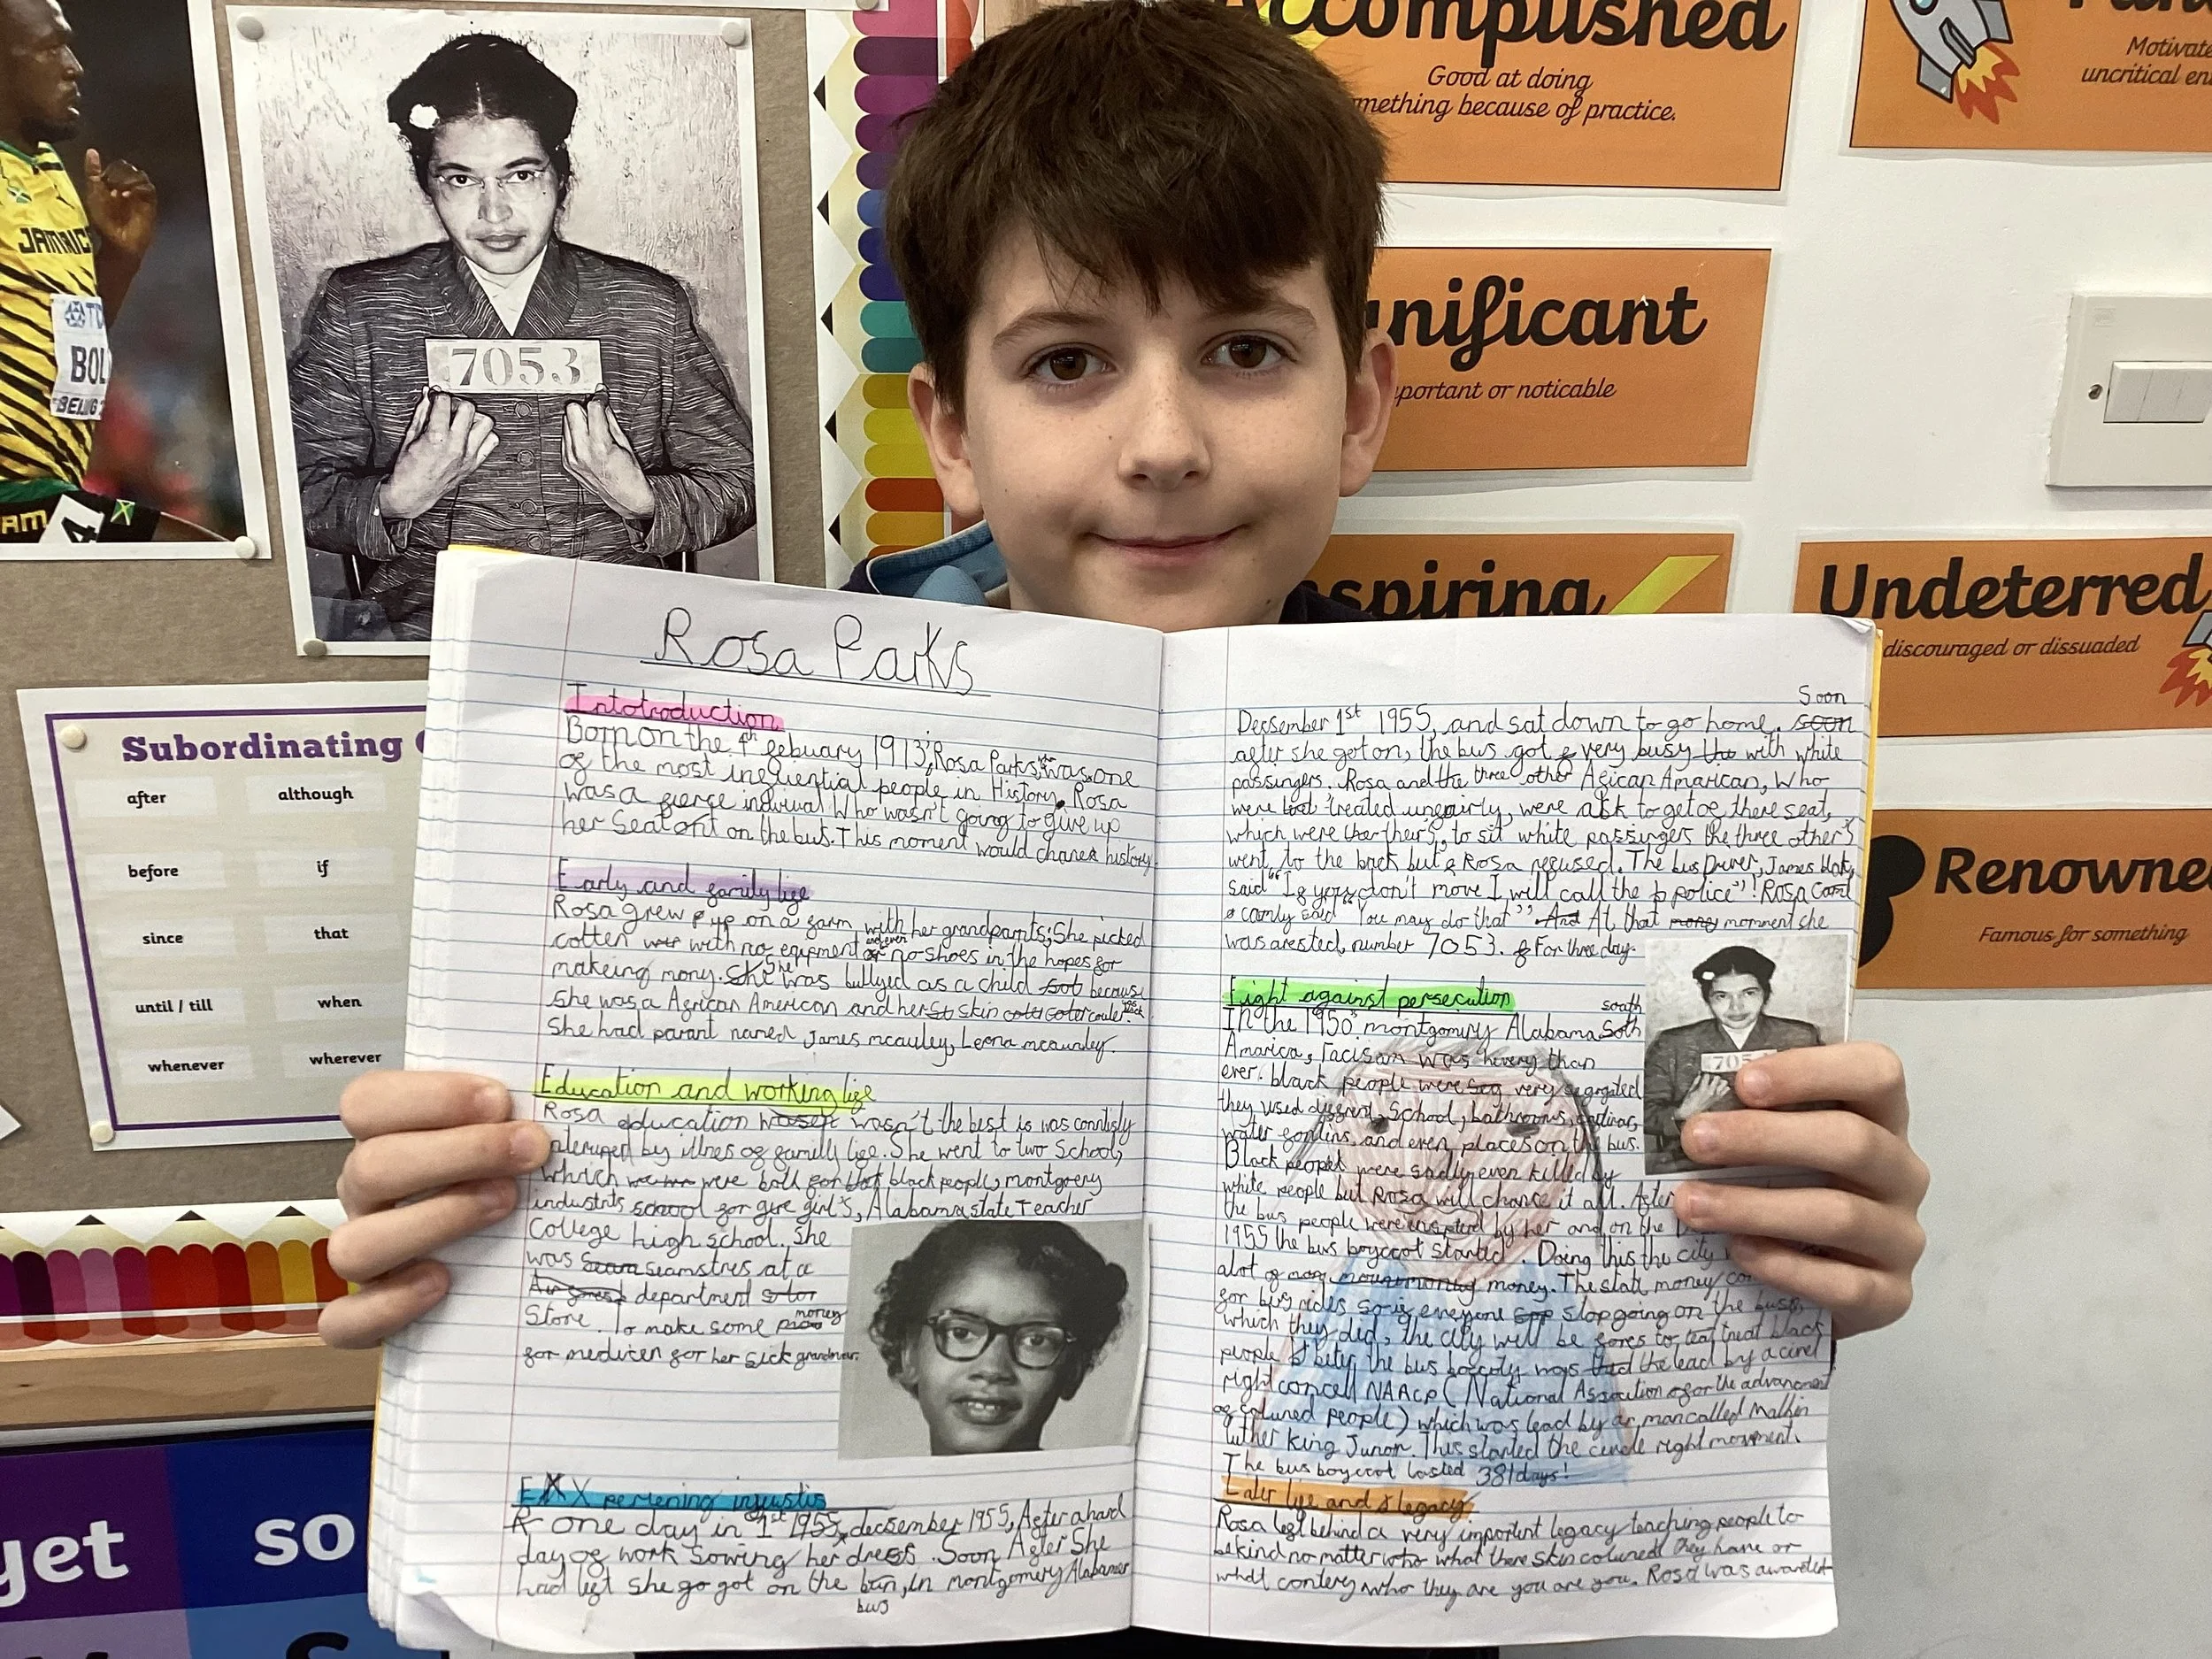 JAMAIC
TD
BOL
BEIJING
AM
4
7053
Accomplished
Good at doing
mething because of practice.
Motivate
uncritical en
nificant
portant or noticable
spiring
Undeterred
discouraged or dissuaded
Renowne
Famous for something
Subordinating
after
although
before
if
since
that
until / till
when
whenever
wherever
yet
so
Rosa Parks
Intotroduction
Born on the 4th febuary 1913, Rosa Parks was one
of the most influential people in History. Rosa
was a fierce indivual Who wasn't going to give up
her Seat on the bus. This moment would change history
Early and family life
Rosa grew up on a farm with her grandparnts; She picked
cotten with no eqipment and even no shoes in the hopes for
makeing mony. She was bullyed as a child because
She was a African American and her skin couler
She had parant named James mcauley, Leona mcauley.
Education and working life
Rosa education wasn't the best is was
by illnes of family life. She went to two School,
which were both for black people, montgoery
school for girl's, Alabama state Teacher
College high school. She
was seamstres at a
department
Store. To make some money
for medicen for her sick
EXX perening injustis
one day in 1st 1955, decsember 1955, After a hard
day of work sowing her dress. Soon After She
had left She go got on the bus, in montgomery Alabamer
Soon
Decsember 1st 1955, and sat down to go home. soon
after she got on, the bus got very busy with white
passingers. Rosa and the three other African Amarican, Who
were treated unfairly, were ask to get of there seat,
which were their's, to sit white passingers the three other's
went to the back but Rosa refused. The bus Driver, James
said "If you don't move I will call the police"! Rosa
camly said "You may do that" At that momment she
was arested, number 7053. For three day.
Fight against persecution
south
In the 1950s montgomry Alabama
Amarica, racisam was than
ever. black people were very segrgated
they used School, bathrooms,
water and even places on the bus.
Black people were sadly even killed by
white people but Rosa will change it all. After
the bus people were by her and on the
1955 the bus boycot started. Doing this the city
alot of money. The stat money
for bus rides so if everyone stop going on the buss,
which they did, the city will be fores to treat black
people beter, the bus was the lead by a
right NAACP (National for the
of colured people) which was lead by a man called
luther King Junor. This started the right movment.
The bus boycot lasted 381 days!
Later life and legacy
Rosa left behind a very important legacy teaching people to
be kind no matter who what there skin colured they have or
what who they are you are you. Rosa was awarded
7053